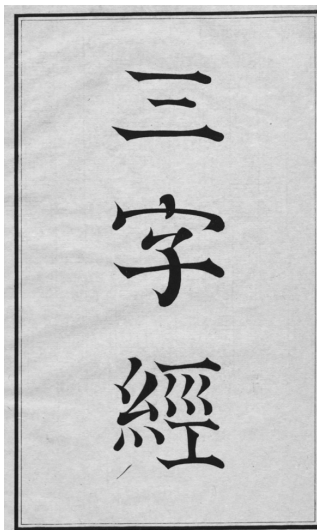 三字經